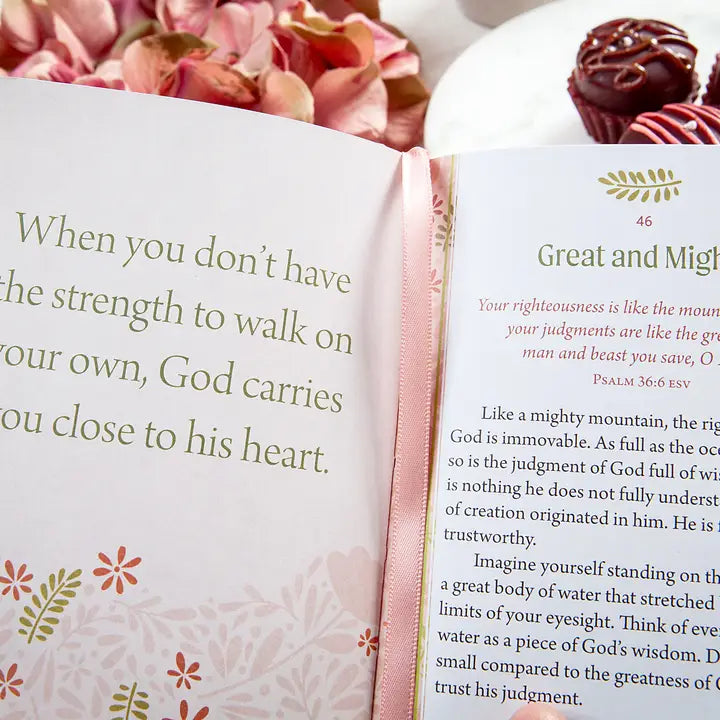 When you don't have
the strength to walk on
your own, God carries
you close to his heart.
46
Great and Migh
Your righteousness is like the moun
your judgments are like the gre
man and beast you save, O
Psalm 36:6 ESV
Like a mighty mountain, the rig
God is immovable. As full as the oce
so is the judgment of God full of wis
is nothing he does not fully underst
of creation originated in him. He is f
trustworthy.
Imagine yourself standing on th
a great body of water that stretched
limits of your eyesight. Think of eve
water as a piece of God's wisdom. D
small compared to the greatness of G
trust his judgment.